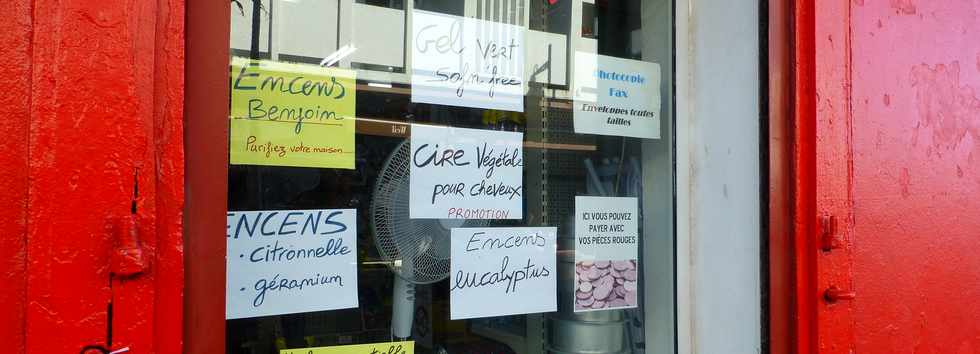 Gel Vert
Encens
Benjoin
Purifiez votre maison...
Photocopie
Fax
Enveloppes toutes
tailles
CIRE Végétale
POUR CHEVEUX
PROMOTION
ENCENS
. citronnelle
. géramium
Encens
eucalyptus
ICI VOUS POUVEZ
PAYER AVEC
VOS PIÈCES ROUGES